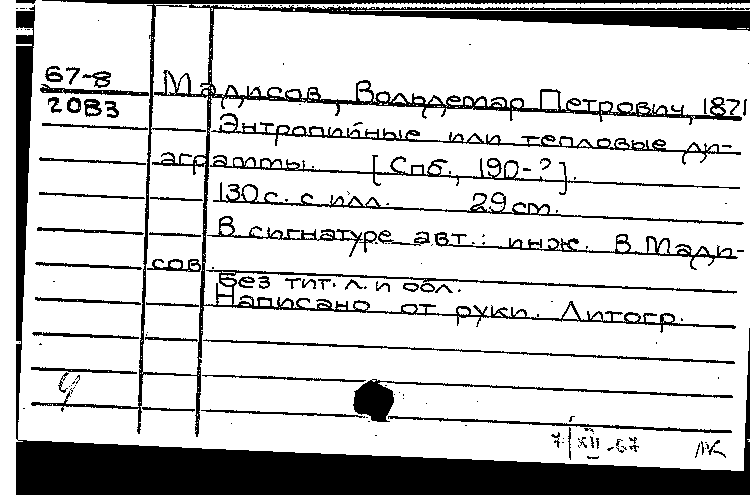 67-8
2083
Мадисов, Вольдемар Петрович, 1871
Энтропийные или тепловые ди-
аграммы. [Спб., 190-?].
130 с. с илл. 29 см.
В сигнатуре авт.: инж. В. Мади-
сов.
Без тит. л. и обл.
Написано от руки. Литогр.
7/XII-67